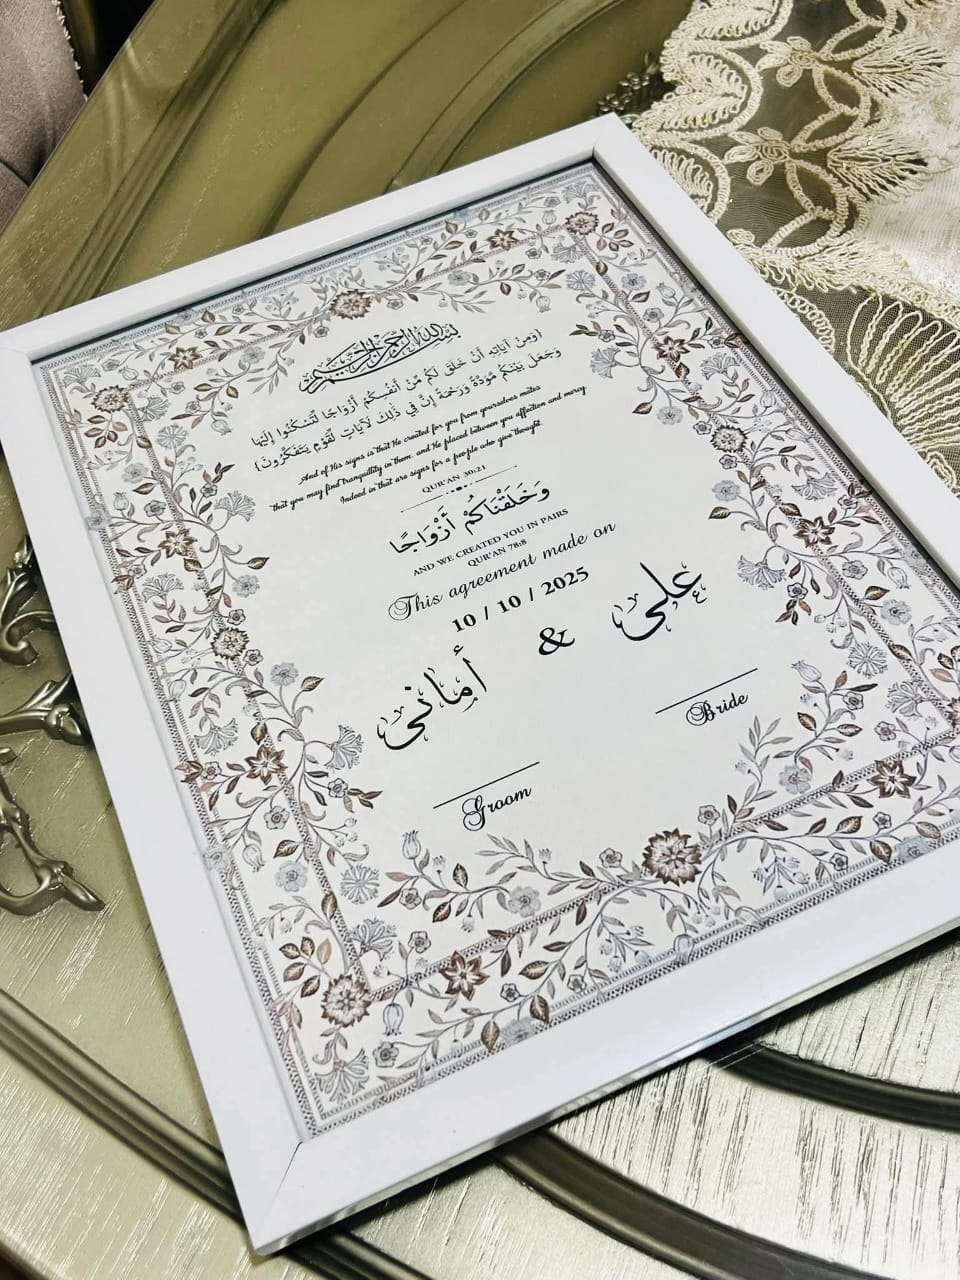 بسم الله الرحمن الرحيم
(وَمِنْ آيَاتِهِ أَنْ خَلَقَ لَكُم مِّنْ أَنفُسِكُمْ أَزْوَاجًا لِّتَسْكُنُوا إِلَيْهَا
وَجَعَلَ بَيْنَكُم مَّوَدَّةً وَرَحْمَةً إِنَّ فِي ذَٰلِكَ لَآيَاتٍ لِّقَوْمٍ يَتَفَكَّرُونَ)
And of His signs is that He created for you from yourselves mates
that you may find tranquillity in them, and He placed between you affection and mercy
Indeed in that are signs for a people who give thought.
QUR'AN 30:21
وَخَلَقْنَاكُمْ أَزْوَاجًا
AND WE CREATED YOU IN PAIRS
QUR'AN 78:8
This agreement made on
10 / 10 / 2025
أماني & علي
Groom Bride